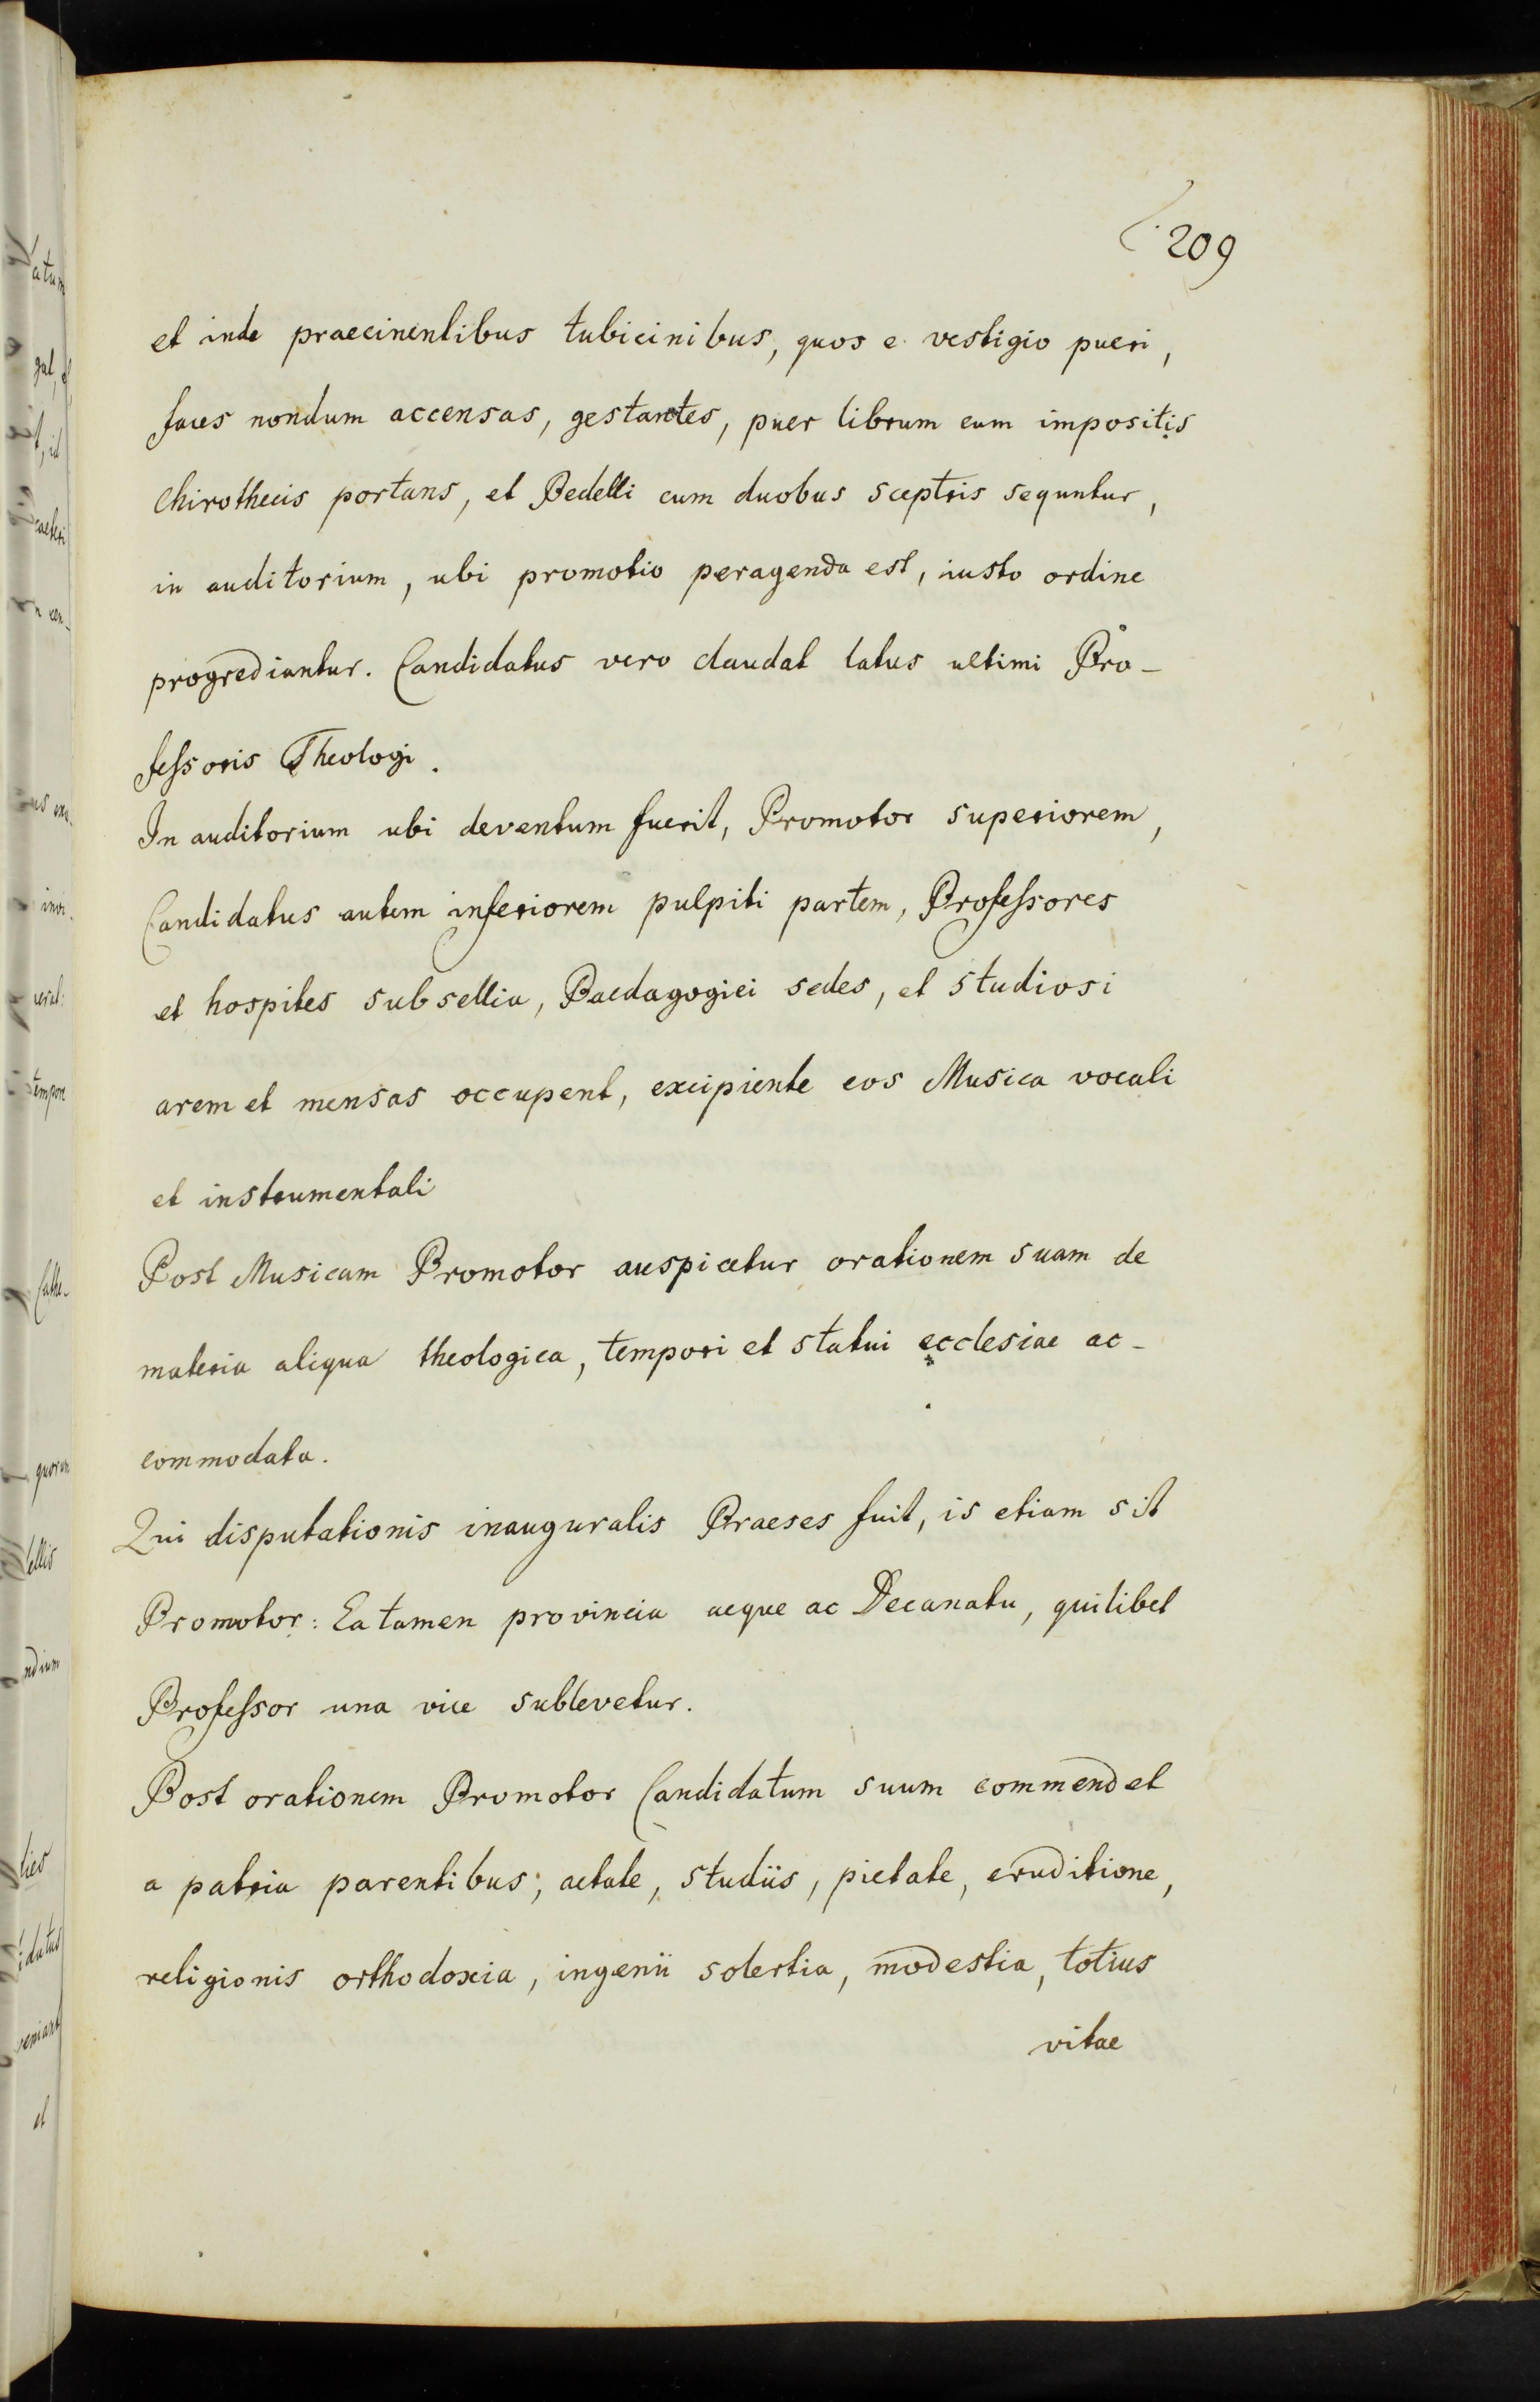 209
et inde praecinentibus tubicinibus, quos e vestigio pueri,
faces nondum accensas, gestantes, puer librum cum impositis
Chirothecis portans, et Bedelli cum duobus sceptris sequntur,
in auditorium, ubi promotio peragenda est, iusto ordine
progrediantur. Candidatus vero claudat latus ultimi Pro-
fessoris Theologi.
In auditorium ubi deventum fuerit, Promotor superiorem,
Candidatus autem inferiorem pulpiti partem, Professores
et hospites subsellia, Paedagogici sedes, et studiosi
arem et mensas occupent, excipiente eos Musica vocali
et instrumentali
Post Musicam Promotor auspicetur orationem suam de
materia aliqua theologica, tempori et statui ecclesiae ac-
commodata.
Qui disputationis inauguralis Praeses fuit, is etiam sit
Promotor: Ea tamen provincia aeque ac Decanatu, quilibet
Professor una vice sublevetur.
Post orationem Promotor Candidatum suum commendet
a patria parentibus, aetate, studiis, pietate, eruditione,
religionis orthodoxia, ingenii solertia, modestia, totius
vitae
atum
gat,
t, id
caeteri
n con-
invi
tempore
Cathe-
quorum
ndium
idatus
veniant
et